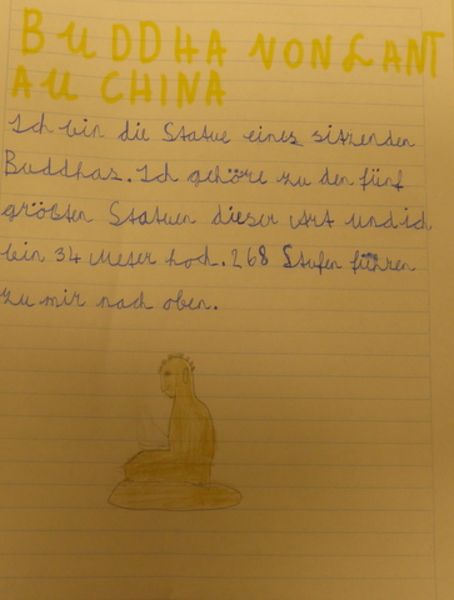 BUDDHA VON LANT
AU CHINA
Ich bin die Statue eines sitzenden
Buddhas. Ich gehöre zu den fünf
größten Statuen dieser Art und ich
bin 34 Meter hoch. 268 Stufen führen
zu mir nach oben.